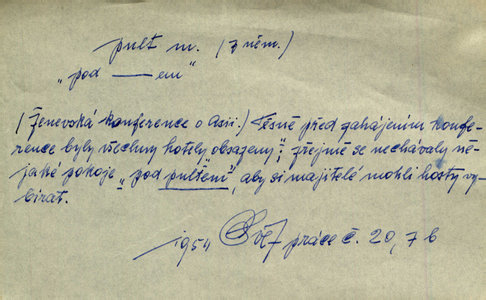 pult m. (z něm.)
„pod ——em“
(Ženevská konference o Asii.) Těsně před zahájením konfe-
rence byly všechny hotely obsazeny; zřejmě se nechávaly ně-
jaké pokoje „pod pultem“, aby si majitelé mohli hosty vy-
bírat.
1954 práce č. 20, 7 b